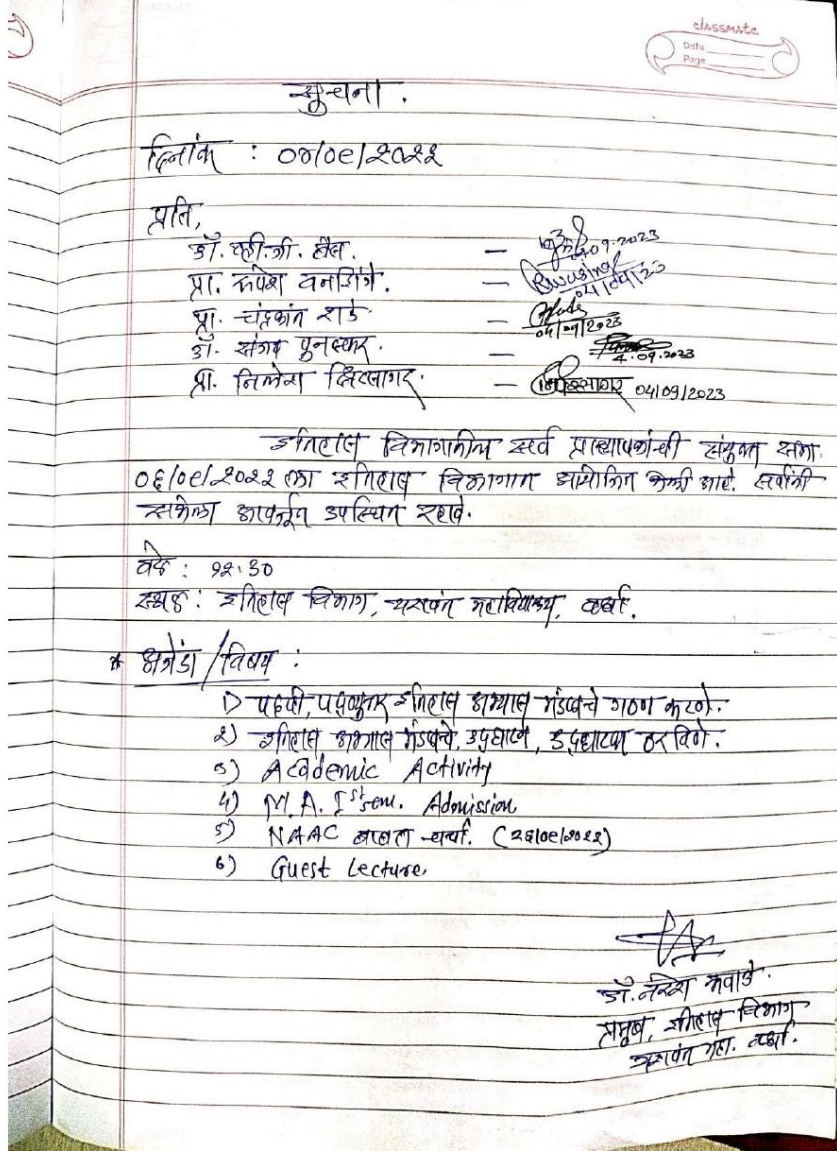 classmate
Date
Page
सुचना.
दिनांक : ०४/०९/२०२३
प्रति,
डॉ. व्ही.जी. बैस. — 4.09.2023
प्रा. रुपेश वनसिंगे. — Rwasinge 04/09/23
प्रा. चंद्रकांत शडे — 04/09/2023
डॉ. संजय धुनस्कर. — 4.09.2023
प्रा. निलेश क्षिरसागर. — क्षिरसागर 04/09/2023
इतिहास विभागातील सर्व प्राध्यापकांची संयुक्त सभा
०६/०९/२०२३ ला इतिहास विभागात आयोजित केली आहे. सर्वांनी
सभेला आवर्जून उपस्थित रहावे.
वेळ : १२:३०
स्थळ : इतिहास विभाग, यशवंत महाविद्यालय, वर्धा.
* अजेंडा / विषय :
1) पदवी, पदव्युत्तर इतिहास अभ्यास मंडळाचे गठण करणे.
2) इतिहास अभ्यास मंडळाचे, उद्घाटन, उद्घाटक ठरविणे.
3) Academic Activity
4) M.A. Ist sem. Admission
5) NAAC बाबत चर्चा. (२६/०९/२०२३)
6) Guest Lecture.
डॉ. नरेश कवाडे.
प्रमुख, इतिहास विभाग
यशवंत महा. वर्धा.